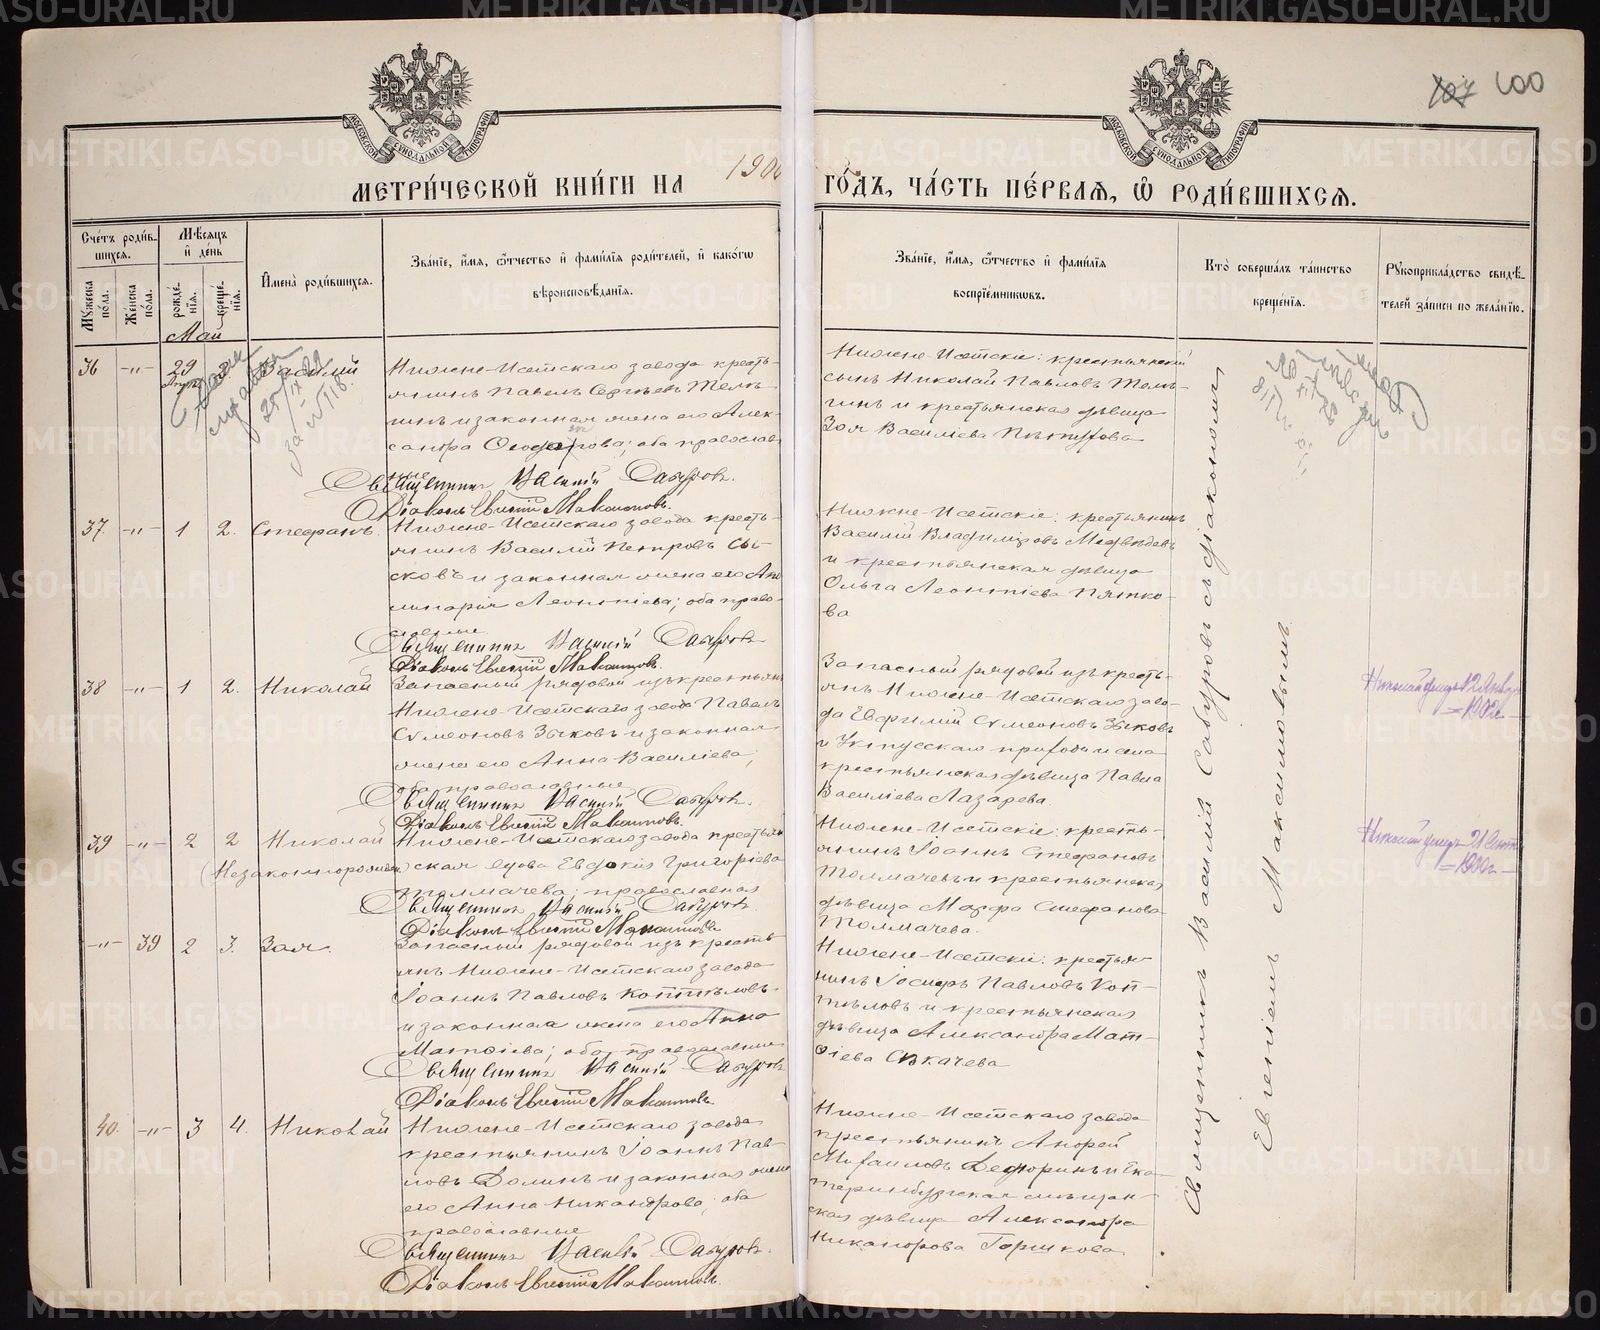 107 100
МЕТРИ́ЧЕСКОЙ КНИ́ГИ НА 1900 ГО́ДЪ, ЧА́СТЬ ПЕ́РВАЯ, Ѽ РОДИ́ВШИХСЯ.
МОСКОВСКОЙ СУНОДАЛЬНОЙ ТИПОГРАФІИ
МОСКОВСКОЙ СУНОДАЛЬНОЙ ТИПОГРАФІИ
Сче́тъ роди́в-
шихся.
Му́жеска по́ла.
Же́нска по́ла.
Мѣ́сяцъ
и҆ де́нь
рожде́-
нїя.
креще́-
нїя.
И҆мена̀ роди́вшихся.
Зва́нїе, и҆́мя, ѻ҆́тчество и҆ фами́лїя роди́телей, и҆ како́гѡ
вѣроисповѣ́данїя.
Зва́нїе, и҆́мя, ѻ҆́тчество и҆ фами́лїя
воспрїе́мниковъ.
Кто̀ соверша́лъ та́инство
креще́нїя.
Рꙋкоприкла́дство свидѣ́-
телей за́писи по жела́нїю.
Май
36 -"- 29 Василій
Апр.
25/IX 29
за №118.
Нижне-Исетскаго завода кресть-
янинъ Павелъ Сергѣевъ Телѣ-
гинъ и законная жена его Алек-
сандра; оба православ-
ные
Священникъ Василій Сабуровъ.
Діаконъ Евгеній Максимовъ.
Нижне-Исетскіе: крестьянскій
сынъ Николай Павловъ Телѣ-
гинъ и крестьянская дѣвица
Зоя Василіева
37. -"- 1 2. Стефанъ.
Нижне-Исетскаго завода кресть-
янинъ Василій Петровъ Сы-
сковъ и законная жена его Апо
линарія Леонтіева; оба право-
славные
Священникъ Василій Сабуровъ
Діаконъ Евгеній Максимовъ.
Нижне-Исетскіе: крестьянинъ
Василій Владиміровъ Медвѣдевъ
и крестьянская дѣвица
Ольга Леонтіева Пятко-
ва
38 -"- 1 2. Николай
Запасный рядовой изъ крестьянъ
Нижне-Исетскаго завода Павелъ
Сумеоновъ Зыковъ и законная
жена его Анна Василіева;
оба православные
Священникъ Василій Сабуровъ.
Діаконъ Евгеній Максимовъ.
Запасный рядовой изъ кресть-
янъ Нижне-Исетскаго заво-
да Евфимій Сумеоновъ Зыковъ
и Уктусскаго прихода и села
крестьянская дѣвица Павла
Василіева Лазарева.
Николай умеръ 12 Января
1902 г.
39 -"- 2 2 Николай
(Незаконнорожден.)
Нижне-Исетскаго завода крестьян
ская вдова Евдокія Григоріева
Толмачева; православная
Священникъ Василій Сабуровъ
Діаконъ Евгеній Максимовъ
Нижне-Исетскіе: кресть-
янинъ Іоаннъ Стефановъ
Толмачевъ и крестьянская
дѣвица Марфа Стефанова
Толмачева.
Николай умеръ 21 Сент.
1900 г.
-"- 39 2 3. Зоя.
Запасный рядовой изъ кресть-
янъ Нижне-Исетскаго завода
Іоаннъ Павловъ Коптѣловъ
и законная жена его Анна
Матѳіева; оба православные
Священникъ Василій Сабуровъ
Діаконъ Евгеній Максимовъ
Нижне-Исетскіе: крестья-
нинъ Іосифъ Павловъ Коп-
тѣловъ и крестьянская
дѣвица Александра Мат-
ѳіева Секачева
40. -"- 3 4. Николай
Нижне-Исетскаго завода
крестьянинъ Іоаннъ Пав-
ловъ Долинъ и законная жена
его Анна Никандрова; оба
православные
Священникъ Василій Сабуровъ.
Діаконъ Евгеній Максимовъ.
Нижне-Исетскаго завода
крестьянинъ Андрей
Михаиловъ Дедюринъ и Ека-
теринбургская мѣщан-
ская дѣвица Александра
Никандрова Горшкова.
Священникъ Василій Сабуровъ съ діакономъ
Евгеніемъ Максимовымъ.
METRIKI.GASO-URAL.RU